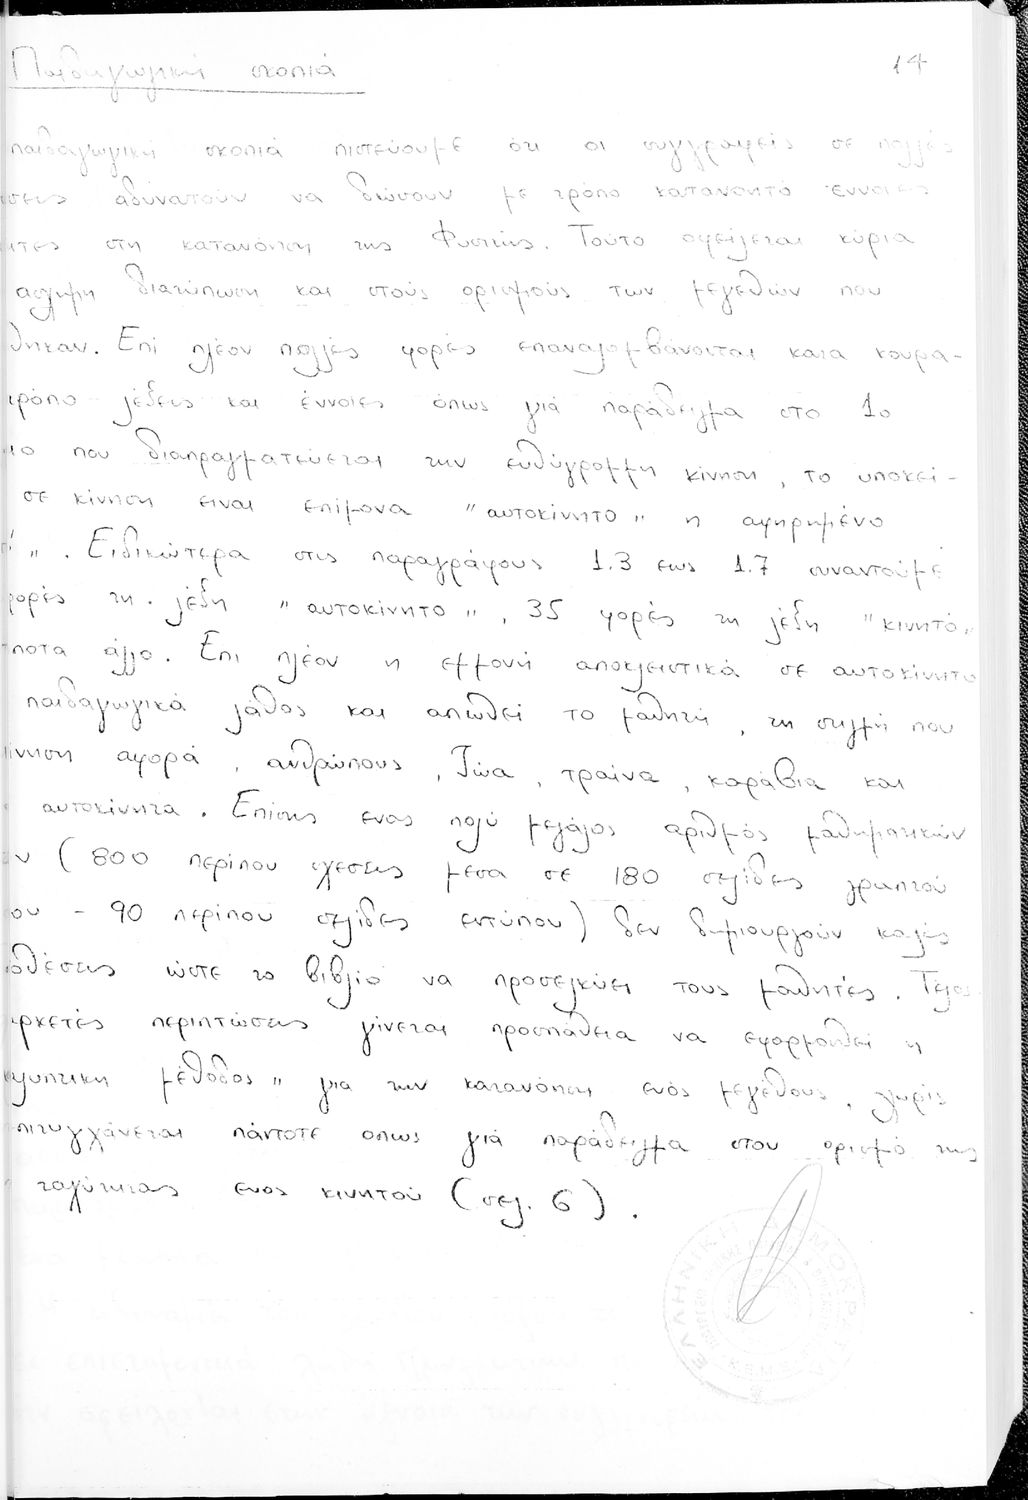 Παιδαγωγική σκοπιά
14
παιδαγωγική σκοπιά πιστεύουμε ότι οι συγγραφείς σε πολλές
σεις αδυνατούν να δώσουν με τρόπο κατανοητό έννοιες
ντες στη κατανόηση της Φυσικής. Τούτο οφείλεται κύρια
ασχημη διατύπωση και στούς ορισμούς των μεγεθών που
θηκαν. Επί πλέον πολλές φορές επαναλαμβάνονται κατα κουρα-
τρόπο λέξεις και έννοιες όπως γιά παράδειγμα στο 1ο
ιο που διαπραγματεύεται την ευθύγραμμη κίνηση, το υποκεί-
σε κίνηση ειναι επίμονα "αυτοκίνητο" η αφηρημένο
". Ειδικώτερα στις παραγράφους 1.3 εως 1.7 συναντούμε
φορές τη λέξη "αυτοκίνητο", 35 φορές τη λέξη "κινητό"
τποτα άλλο. Επι πλέον η εμμονή αποκλειστικά σε αυτοκίνητο
παιδαγωγικά λάθος και απωθεί το μαθητή, τη στιγμή που
κίνηση αφορά, ανθρώπους, ζώα, τραίνα, καράβια και
αυτοκίνητα. Επίσης ενας πολύ μεγάλος αριθμός μαθηματικών
ων (800 περίπου σχεσεις μέσα σε 180 σελίδες γραπτού
ου - 90 περίπου σελίδες εντύπου) δεν δημιουργούν καλές
οθέσεις ώστε το βιβλίο να προσελκύει τους μαθητές. Τέλος
αρκετές περιπτώσεις γίνεται προσπάθεια να εφαρμοσθεί η
καλυπτικη μέθοδος" για την κατανόηση ενός μεγέθους, χωρίς
επιτυγχάνεται πάντοτε οπως γιά παράδειγμα στον ορισμό της
ταχύτητας ενος κινητού (σελ. 6).
ΕΛΛΗΝΙΚΗ ΔΗΜΟΚΡΑΤΙΑ